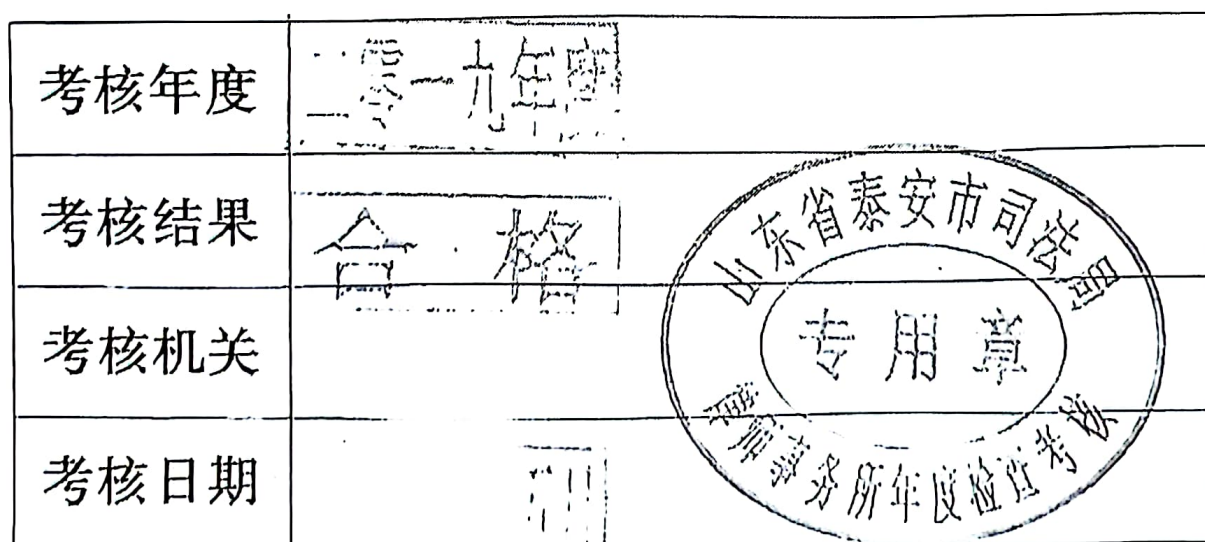 考核年度 二零一九年度
考核结果 合格
考核机关
考核日期
山东省泰安市司法局
专用章
律师事务所年度检查考核